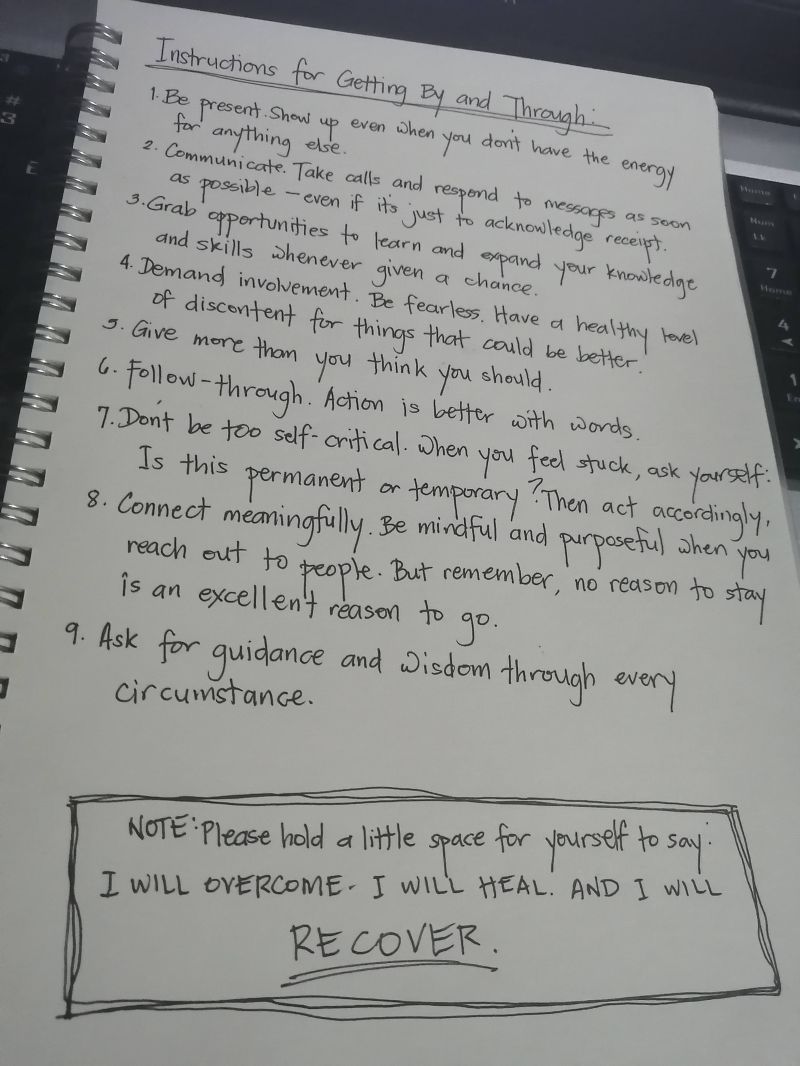 Instructions for Getting By and Through:
1. Be present. Show up even when you don't have the energy
for anything else.
2. Communicate. Take calls and respond to messages as soon
as possible – even if it's just to acknowledge receipt.
3. Grab opportunities to learn and expand your knowledge
and skills whenever given a chance.
4. Demand involvement. Be fearless. Have a healthy level
of discontent for things that could be better.
5. Give more than you think you should.
6. Follow-through. Action is better with words.
7. Don't be too self-critical. When you feel stuck, ask yourself:
Is this permanent or temporary? Then act accordingly.
8. Connect meaningfully. Be mindful and purposeful when you
reach out to people. But remember, no reason to stay
is an excellent reason to go.
9. Ask for guidance and wisdom through every
circumstance.
NOTE: Please hold a little space for yourself to say:
I WILL OVERCOME. I WILL HEAL. AND I WILL
RECOVER.
#
3
E
Home
Num
Lk
7
Home
4
1